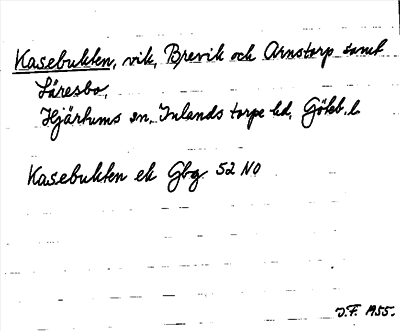 Kasebukten, vik, Brevik och Arnstorp samt
Låresbo,
Hjärtums sn, Inlands torpe hd, Göteb. l.
Kasebukten ek Gbg 52 NO
J.F. 1955.